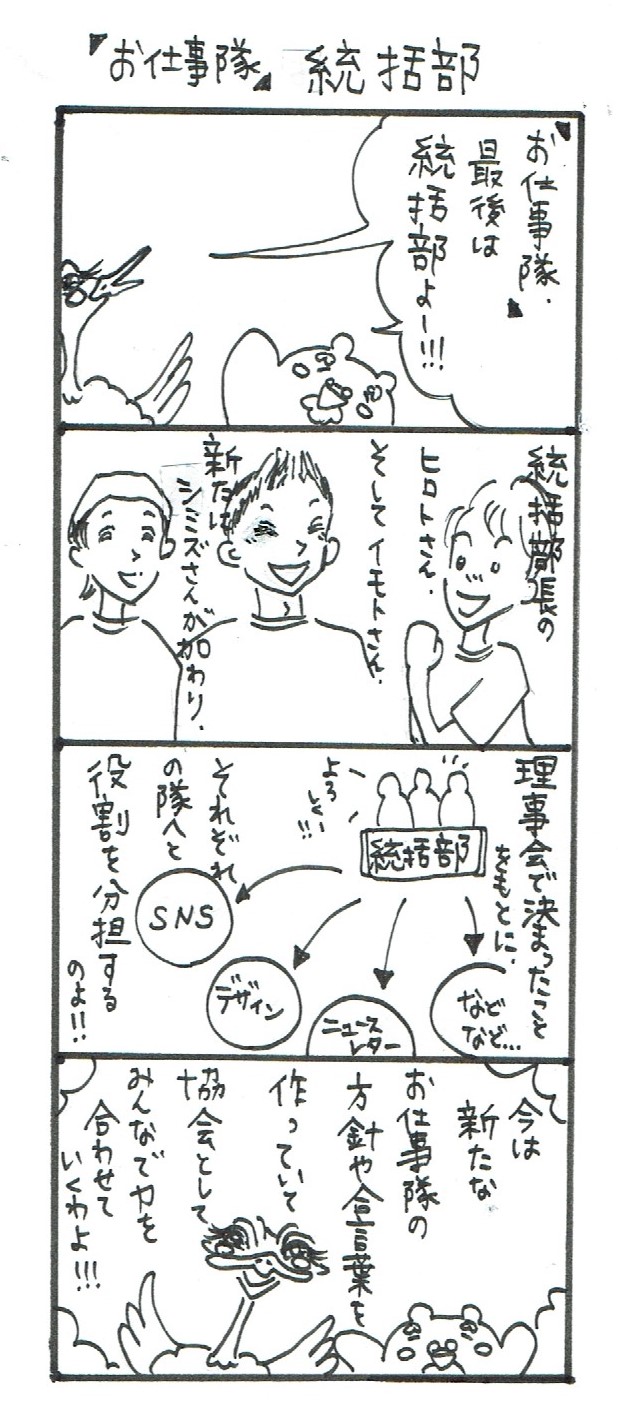 『お仕事隊』 統括部
『お仕事隊』
最後は
統括部よー!!!
統括部長の
ヒロトさん、
そしてイモトさん、
新たに
シミズさんが加わり、
理事会で決まったこと
をもとに、
よろしくー!!
統括部
それぞれ
の隊へと
役割を分担する
のよ!!
SNS
デザイン
ニュース
レター
など
など…
今は
新たな
お仕事隊の
方針や合言葉を
作っていて
協会として
みんなで力を
合わせて
いくわよ!!!